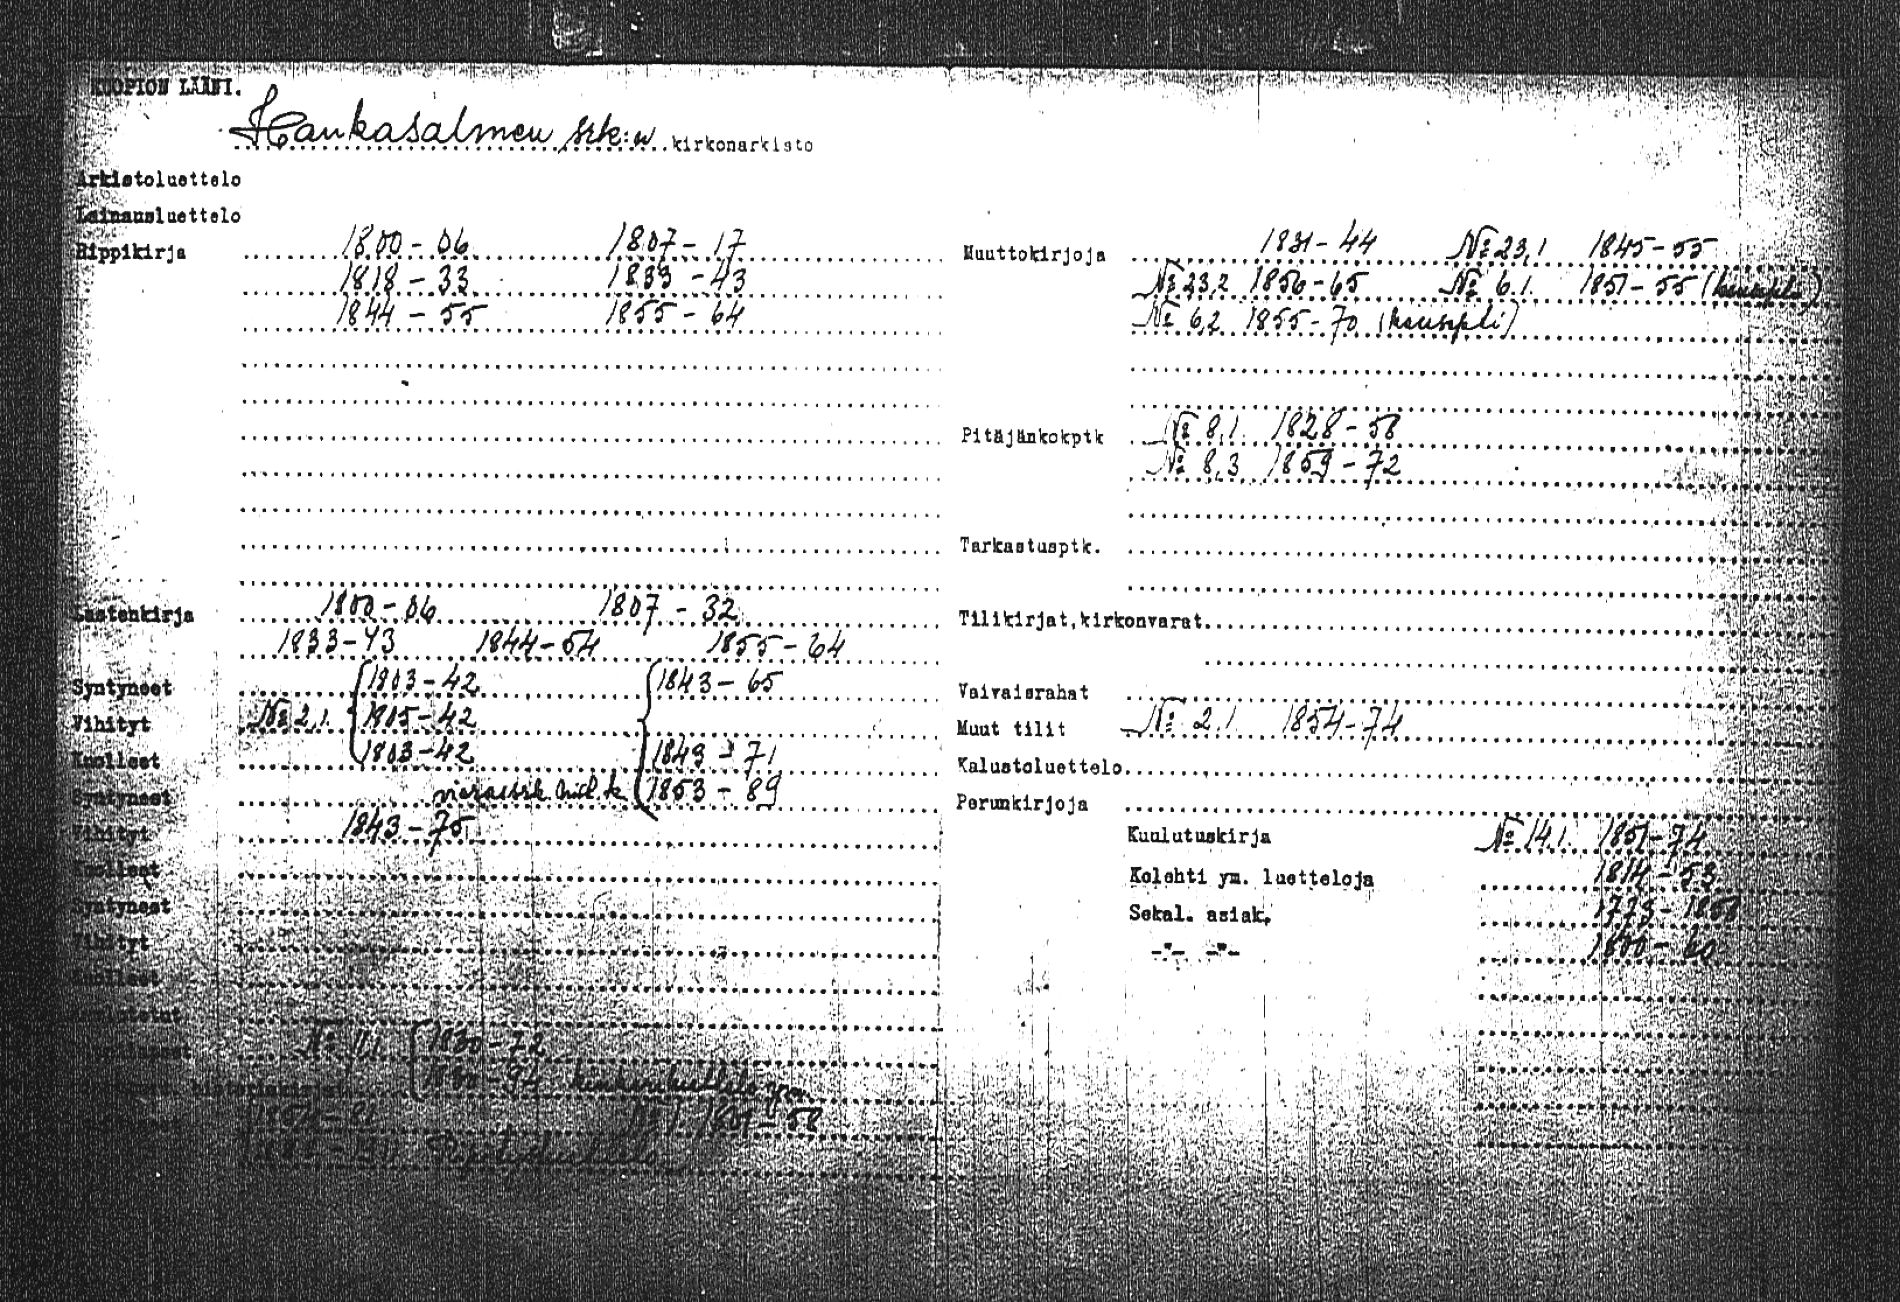 KUOPION LÄÄNI.
Hankasalmen srk:n kirkonarkisto
Arkistoluettelo
Lainausluettelo
Rippikirja 1800-06 1807-17
1818-33 1833-43
1844-55 1855-64
Lastenkirja 1800-06 1807-32
1833-43 1844-54 1855-64
Syntyneet 1803-42 1843-65
Vihityt № 2,1. 1805-42
Kuolleet 1803-42 1843-71
Syntyneet 1853-89
Vihityt 1843-75
Kuolleet
Syntyneet
Vihityt
Kuolleet
1830-72
-58
Muuttokirjoja 1831-44 № 23,1 1845-55
№ 23,2 1856-65 № 6.1. 1851-55
№ 6,2 1855-70
Pitäjänkokptk № 8,1. 1828-58
№ 8,3 1859-72
Tarkastusptk.
Tilikirjat,kirkonvarat.
Vaivaisrahat
Muut tilit № 2,1. 1854-74
Kalustoluettelo
Perunkirjoja
Kuulutuskirja № 14,1. 1851-74
Kolehti ym. luetteloja 1814-53
Sekal. asiak. 1775-1858
-"- -"- 1800-60